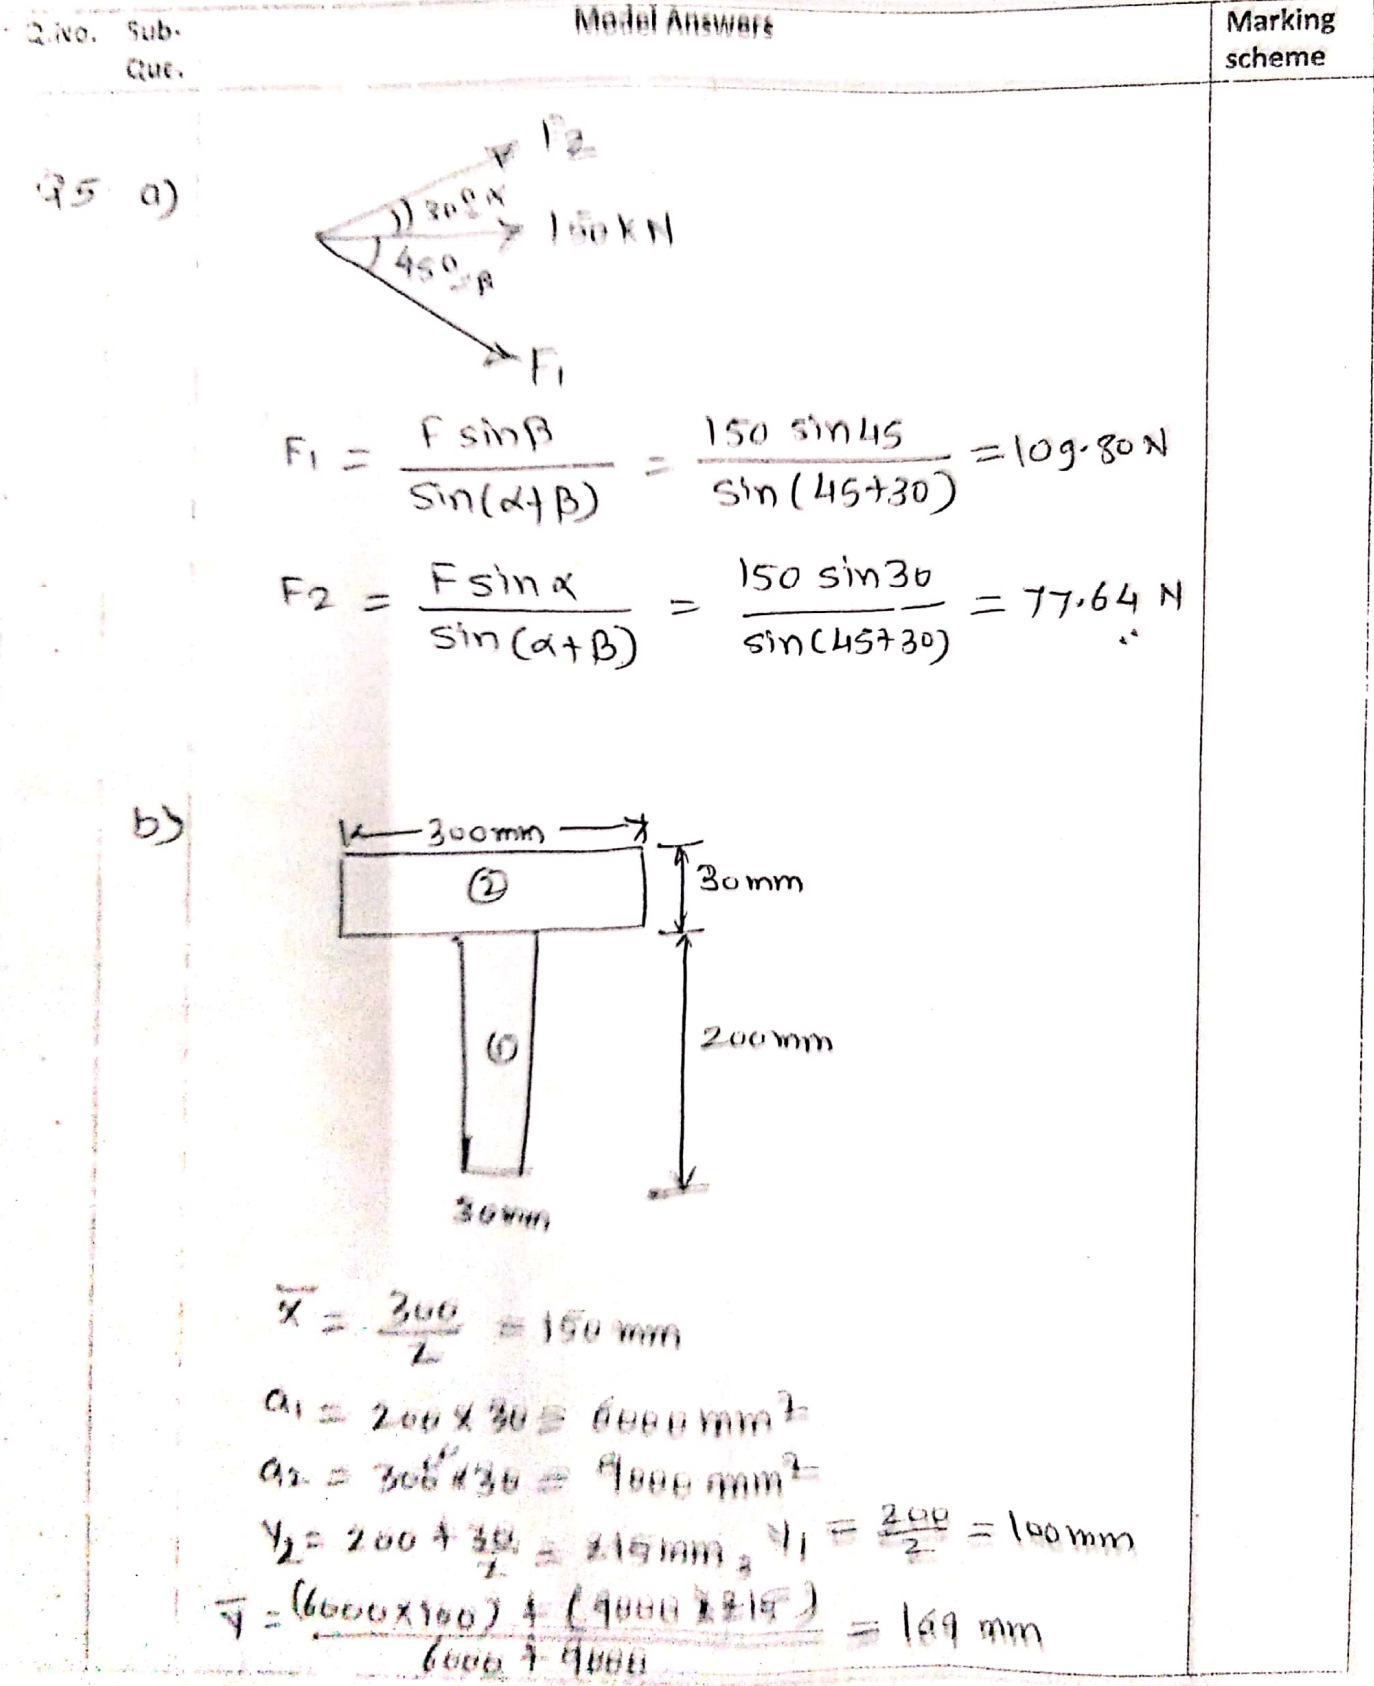 Q.No. Sub. Que. Model Answers Marking scheme
Q5 a)
F2
30° α
150 kN
45° β
F1
F1 = F sinβ / Sin(α+β) = 150 sin45 / Sin(45+30) = 109.80 N
F2 = F sinα / Sin(α+β) = 150 sin30 / sin(45+30) = 77.64 N
b)
300mm
②
30mm
①
200mm
30mm
x̄ = 300/2 = 150 mm
a1 = 200 x 30 = 6000 mm²
a2 = 300 x 30 = 9000 mm²
Y2 = 200 + 30/2 = 215 mm, Y1 = 200/2 = 100mm
ȳ = (6000x100) + (9000 x 215) / 6000 + 9000 = 169 mm